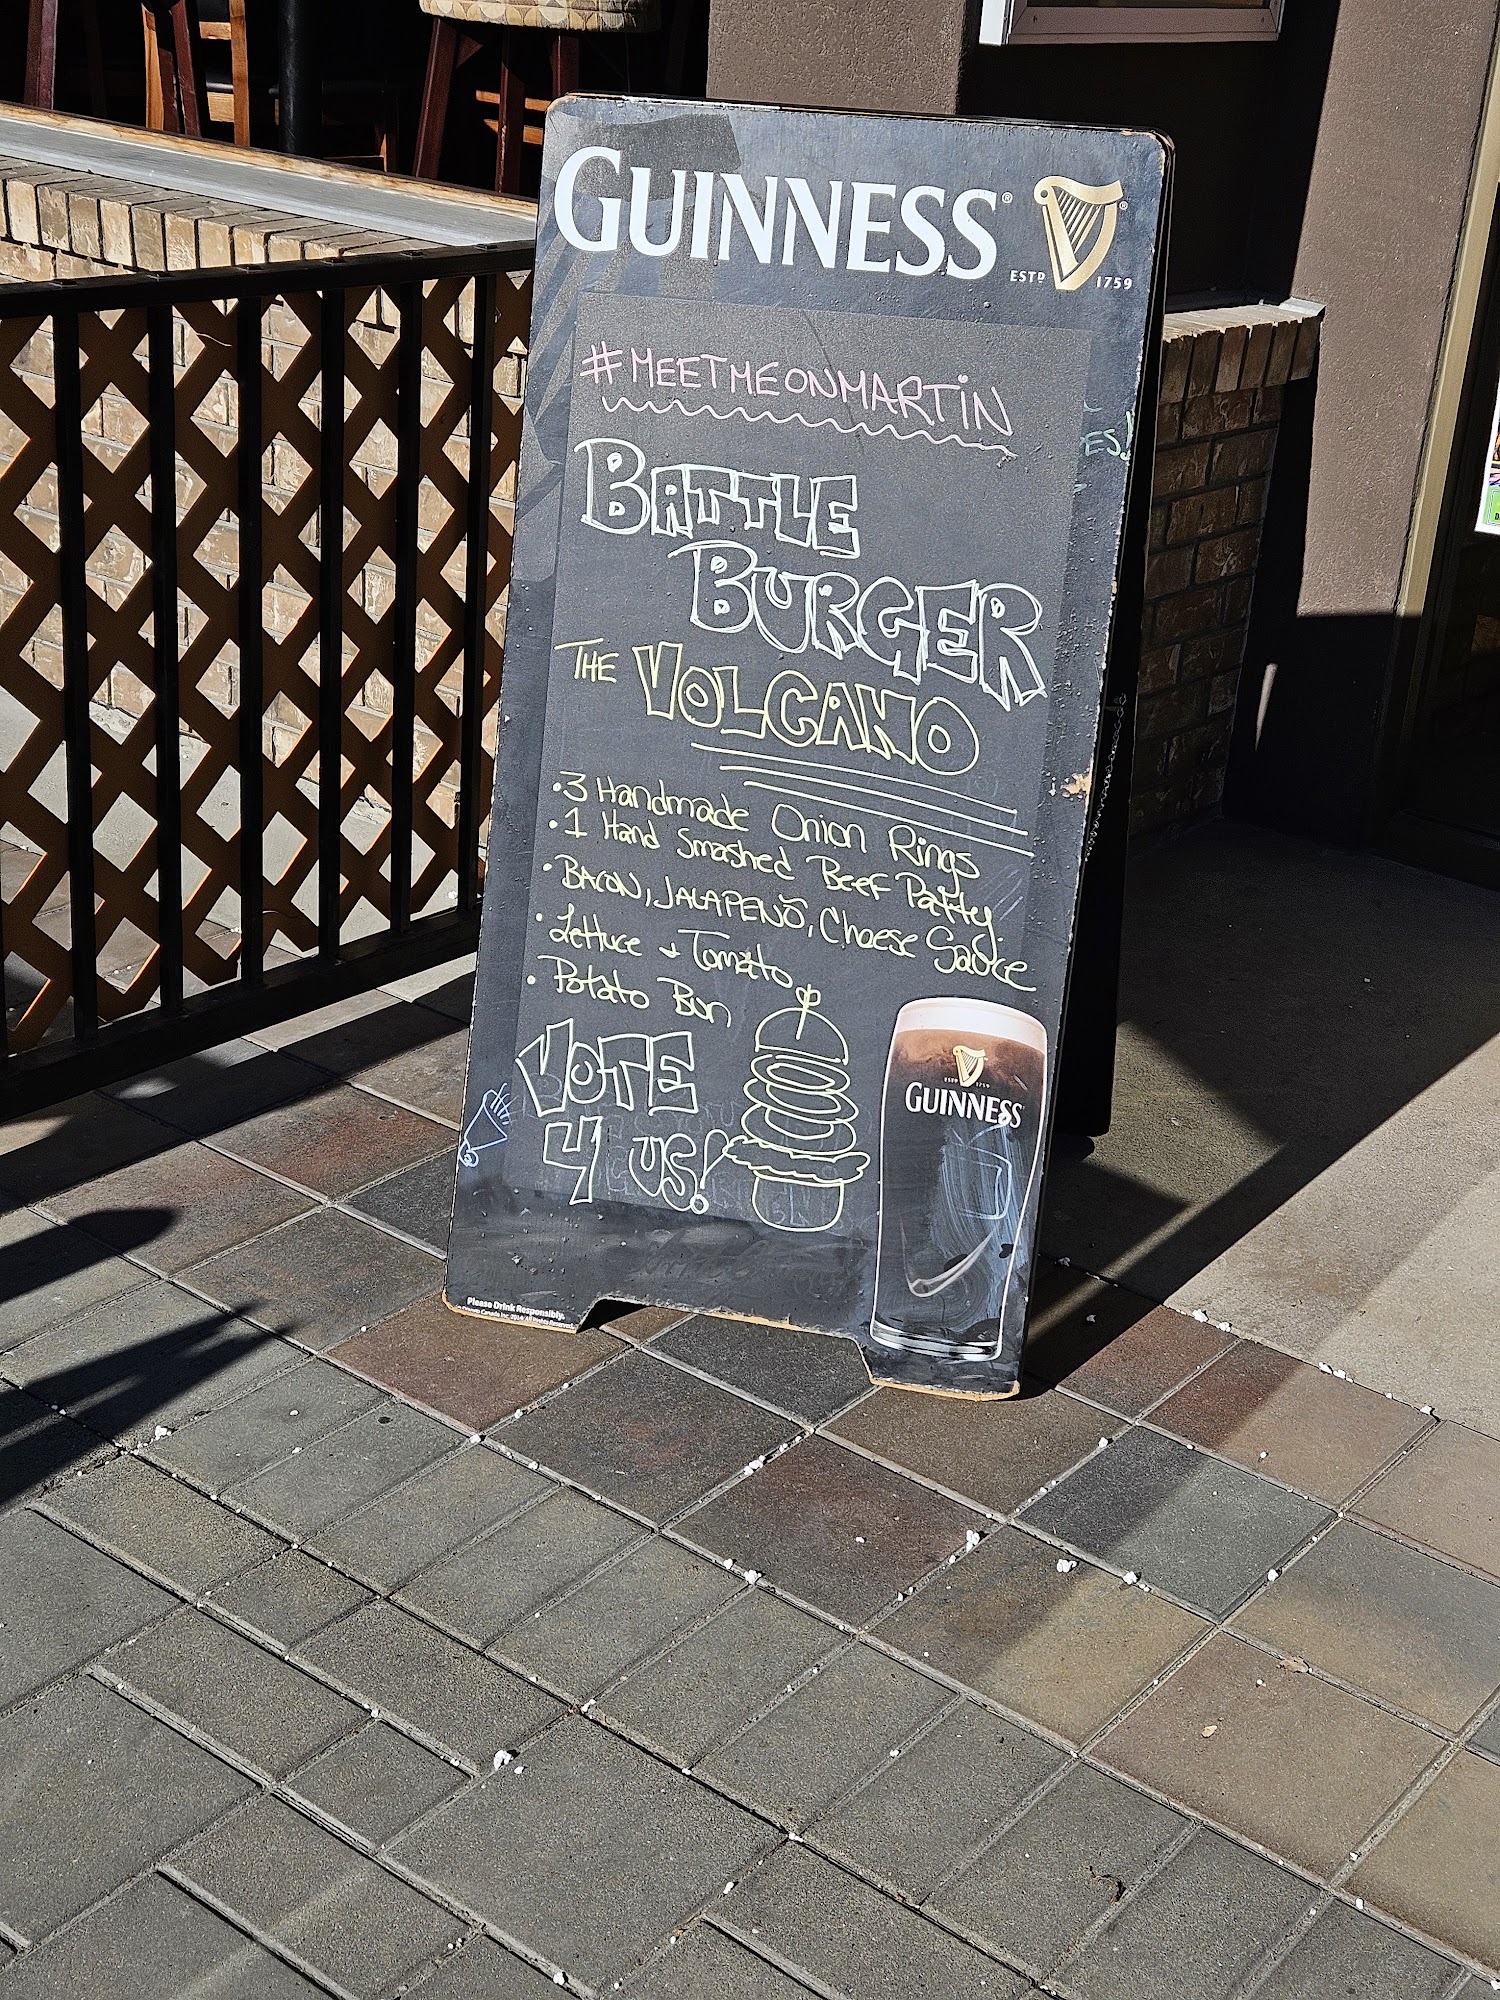 GUINNESS®
ESTD 1759 ®
#MEETMEONMARTiN
BATTLE
BURGER
THE VOLCANO
•3 Handmade Onion Rings
•1 Hand Smashed Beef Patty.
•BACON, JALAPEÑO, Cheese Sauce
•Lettuce + Tomato
•Potato Bun
VOTE
4 US!
ES!
ESTD 1759
GUINNESS
Please Drink Responsibly.